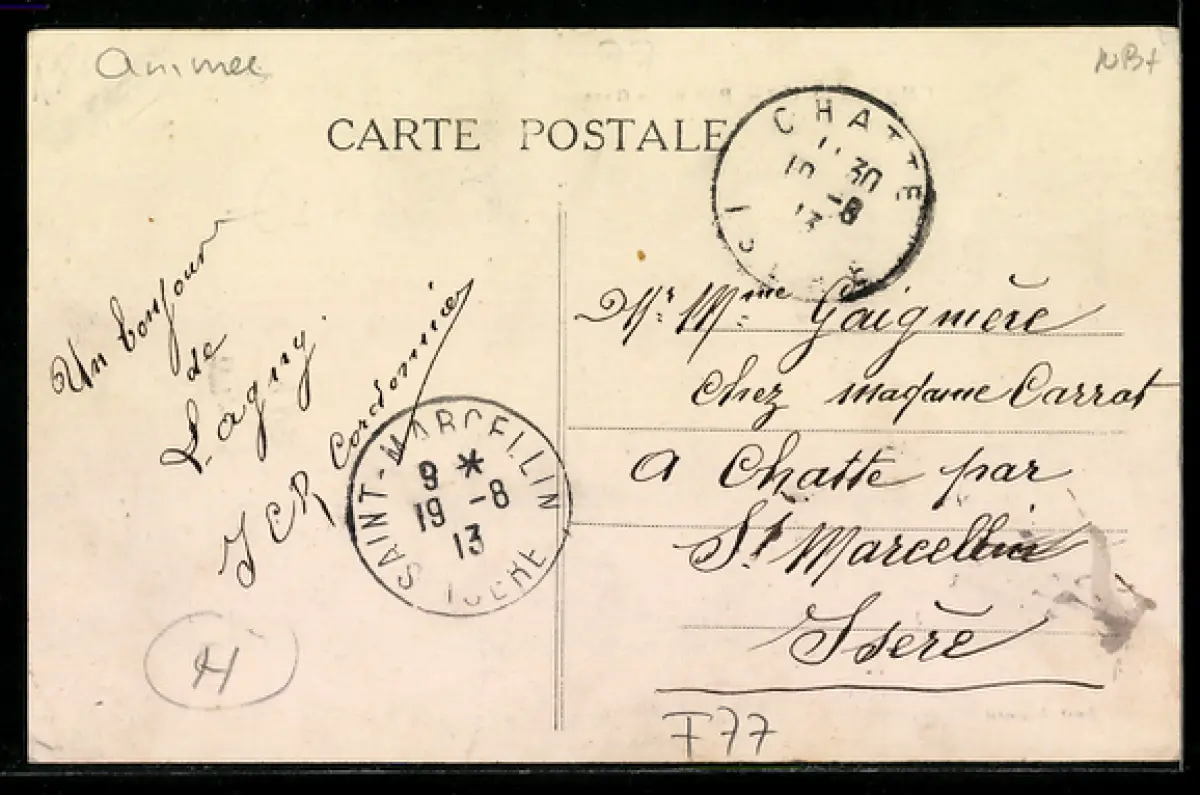 Animée
NB+
CARTE POSTALE
CHATTE
30
-8
Un bonjour
de
Lagny.
Cordonnier
Mr. Mme Gaignière
chez madame Carrat
A Chatte par
St. Marcellin
Isère
SAINT-MARCELLIN
9 *
19 -8
13
ISERE
H
F77